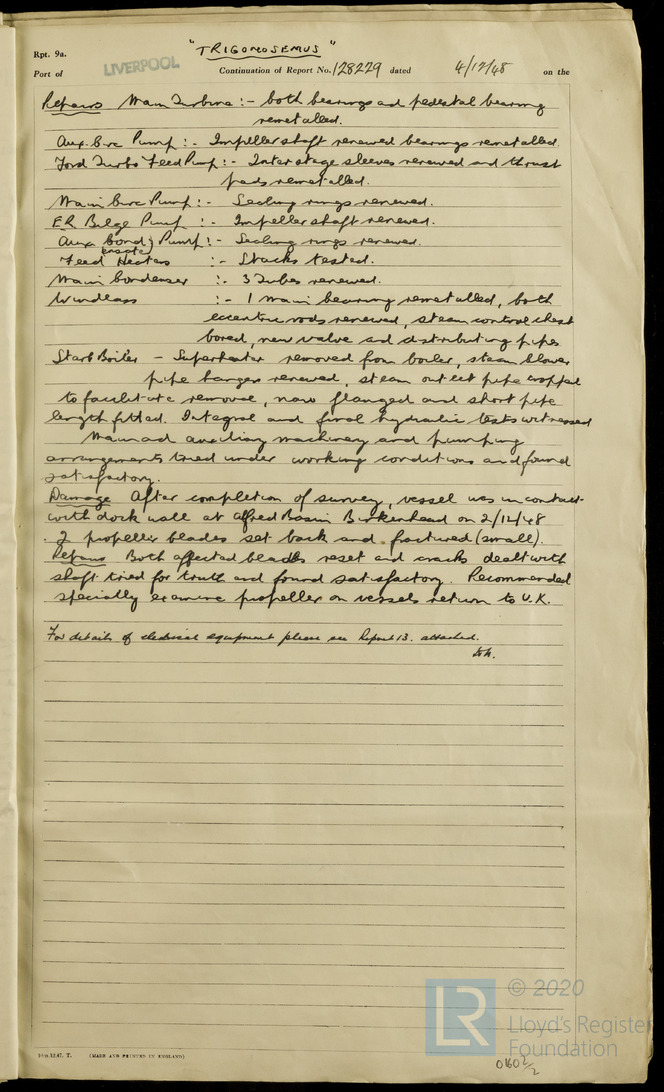 Rpt. 9a.
"TRIGONOSEMUS"
Port of LIVERPOOL Continuation of Report No. 128229 dated 4/12/48 on the
Repairs Main Turbine :- both bearings and pedestal bearing
remetalled.
Aux. Circ Pump :- Impeller shaft renewed bearings remetalled.
Ford Turbo Feed Pump :- Interstage sleeves renewed and thrust
pads remetalled.
Main Circ Pump :- Sealing rings renewed.
E.R. Bilge Pump :- Impeller shaft renewed.
Aux Cond Pump :- Sealing rings renewed.
Feed Heaters :- Stacks tested.
Main Condenser :- 3 Tubes renewed.
Windlass :- 1 main bearing remetalled, both
eccentric rods renewed, steam control chest
bored, new valve and distributing pipes
Starb Boiler - Superheater removed from boiler, steam blower
pipe hanger renewed, steam outlet pipe cropped
to facilitate removal, now flanged and short pipe
length fitted. Integral and final hydraulic tests witnessed
Main and auxiliary machinery and pumping
arrangements tried under working conditions and found
satisfactory.
Damage After completion of survey, vessel was in contact
with dock wall at Alfred Basin Birkenhead on 2/12/48
2 propeller blades set back and fractured (small).
Repairs Both affected blades reset and cracks dealt with
shaft tried for truth and found satisfactory. Recommended
specially examine propeller on vessels return to U.K.
For details of electrical equipment please see Report 13. attached.
10m.12,47. T. (MADE AND PRINTED IN ENGLAND)
LR © 2020
Lloyd's Register
Foundation
0160 2/2